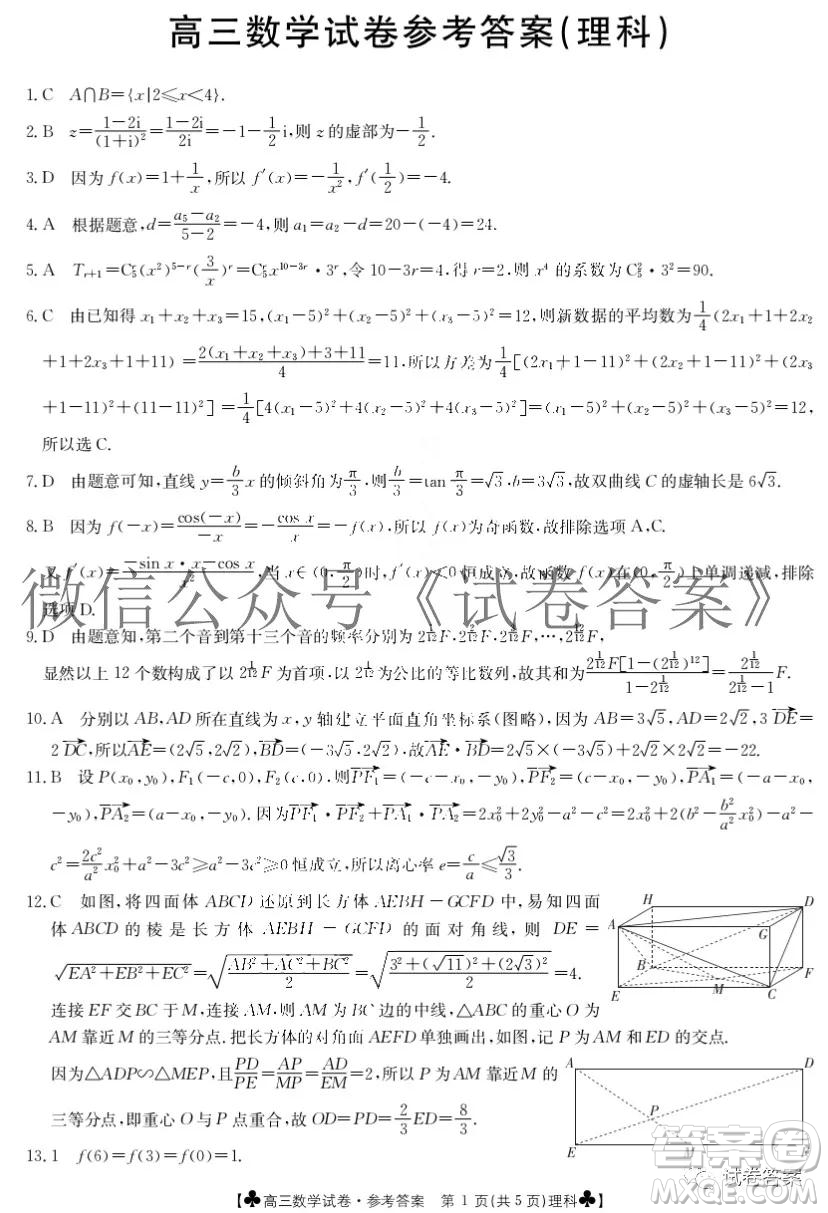 高三数学试卷参考答案(理科)
1. C A∩B={x|2≤x<4}.
2. B z=\frac{1-2i}{(1+i)^2}=\frac{1-2i}{2i}=-1-\frac{1}{2}i,则 z 的虚部为-\frac{1}{2}.
3. D 因为 f(x)=1+\frac{1}{x},所以 f'(x)=-\frac{1}{x^2},f'(\frac{1}{2})=-4.
4. A 根据题意,d=\frac{a_5-a_2}{5-2}=-4,则 a_1=a_2-d=20-(-4)=24.
5. A T_{r+1}=C_5^r(x^2)^{5-r}(\frac{3}{x})^r=C_5^r x^{10-3r}·3^r,令 10-3r=4,得 r=2,则 x^4 的系数为 C_5^2·3^2=90.
6. C 由已知得 x_1+x_2+x_3=15,(x_1-5)^2+(x_2-5)^2+(x_3-5)^2=12,则新数据的平均数为\frac{1}{4}(2x_1+1+2x_2
+1+2x_3+1+11)=\frac{2(x_1+x_2+x_3)+3+11}{4}=11,所以方差为\frac{1}{4}[(2x_1+1-11)^2+(2x_2+1-11)^2+(2x_3
+1-11)^2+(11-11)^2]=\frac{1}{4}[4(x_1-5)^2+4(x_2-5)^2+4(x_3-5)^2]=(x_1-5)^2+(x_2-5)^2+(x_3-5)^2=12,
所以选 C.
7. D 由题意可知,直线 y=\frac{b}{3}x 的倾斜角为\frac{π}{3},则\frac{b}{3}=tan \frac{π}{3}=\sqrt{3},b=3\sqrt{3},故双曲线 C 的虚轴长是 6\sqrt{3}.
8. B 因为 f(-x)=\frac{cos(-x)}{-x}=-\frac{cos x}{x}=-f(x),所以 f(x)为奇函数,故排除选项 A,C.
又 f'(x)=\frac{-sin x·x-cos x}{x^2},当 x∈(0,\frac{π}{2})时,f'(x)<0 恒成立,故函数 f(x)在(0,\frac{π}{2})上单调递减,排除
选项 D.
微信公众号《试卷答案》
9. D 由题意知,第二个音到第十三个音的频率分别为 2^{\frac{1}{12}}F,2^{\frac{2}{12}}F,2^{\frac{3}{12}}F,…,2^{\frac{12}{12}}F,
显然以上 12 个数构成了以 2^{\frac{1}{12}}F 为首项,以 2^{\frac{1}{12}}为公比的等比数列,故其和为\frac{2^{\frac{1}{12}}F[1-(2^{\frac{1}{12}})^{12}]}{1-2^{\frac{1}{12}}}=\frac{2^{\frac{1}{12}}}{2^{\frac{1}{12}}-1}F.
10. A 分别以 AB,AD 所在直线为 x,y 轴建立平面直角坐标系(图略),因为 AB=3\sqrt{5},AD=2\sqrt{2},3\overrightarrow{DE}=
2\overrightarrow{DC},所以\overrightarrow{AE}=(2\sqrt{5},2\sqrt{2}),\overrightarrow{BD}=(-3\sqrt{5},2\sqrt{2}),故\overrightarrow{AE}·\overrightarrow{BD}=2\sqrt{5}×(-3\sqrt{5})+2\sqrt{2}×2\sqrt{2}=-22.
11. B 设 P(x_0,y_0),F_1(-c,0),F_2(c,0),则\overrightarrow{PF_1}=(-c-x_0,-y_0),\overrightarrow{PF_2}=(c-x_0,-y_0),\overrightarrow{PA_1}=(-a-x_0,
-y_0),\overrightarrow{PA_2}=(a-x_0,-y_0).因为\overrightarrow{PF_1}·\overrightarrow{PF_2}+\overrightarrow{PA_1}·\overrightarrow{PA_2}=2x_0^2+2y_0^2-a^2-c^2=2x_0^2+2(b^2-\frac{b^2}{a^2}x_0^2)-a^2-
c^2=\frac{2c^2}{a^2}x_0^2+a^2-3c^2≥a^2-3c^2≥0 恒成立,所以离心率 e=\frac{c}{a}≤\frac{\sqrt{3}}{3}.
12. C 如图,将四面体 ABCD 还原到长方体 AEBH-GCFD 中,易知四面
体 ABCD 的棱是长方体 AEBH-GCFD 的面对角线,则 DE=
\sqrt{EA^2+EB^2+EC^2}=\sqrt{\frac{AB^2+AC^2+BC^2}{2}}=\sqrt{\frac{3^2+(\sqrt{11})^2+(2\sqrt{3})^2}{2}}=4.
连接 EF 交 BC 于 M,连接 AM,则 AM 为 BC 边的中线,△ABC 的重心 O 为
AM 靠近 M 的三等分点.把长方体的对角面 AEFD 单独画出,如图,记 P 为 AM 和 ED 的交点.
因为△ADP∽△MEP,且\frac{PD}{PE}=\frac{AP}{MP}=\frac{AD}{EM}=2,所以 P 为 AM 靠近 M 的
三等分点,即重心 O 与 P 点重合,故 OD=PD=\frac{2}{3}ED=\frac{8}{3}.
H D
A G
B F
M
E C
A D
P
E M F
13. 1 f(6)=f(3)=f(0)=1.
答案圈
MXQE.COM
试卷答案
【♣高三数学试卷·参考答案 第 1 页(共 5 页)理科♣】